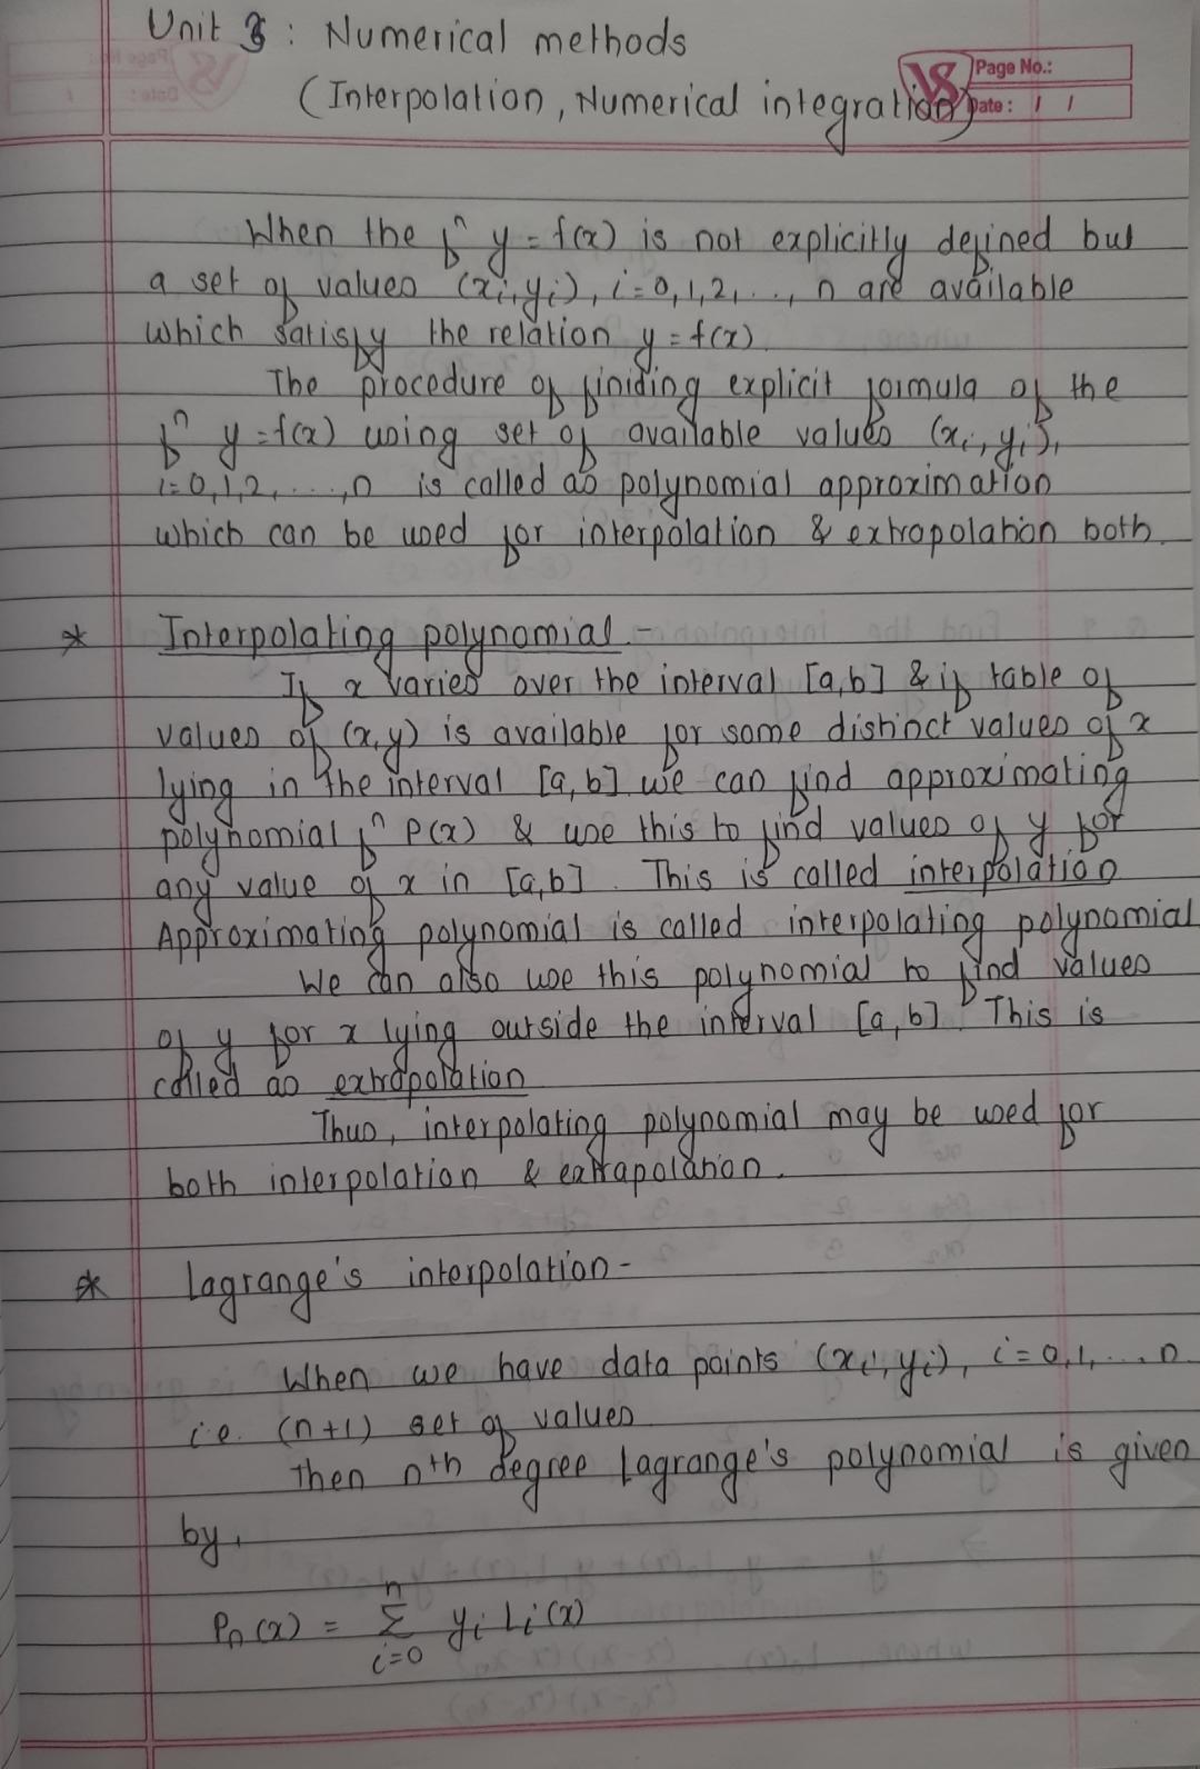 Unit 3 : Numerical methods
(Interpolation, Numerical integration)
VS Page No.:
Date : / /
When the fⁿ y = f(x) is not explicitly defined but
a set of values (xᵢ, yᵢ), i=0,1,2,..., n are available
which satisfy the relation y = f(x).
The procedure of finiding explicit formula of the
fⁿ y = f(x) using set of available values (xᵢ, yᵢ),
i=0,1,2,...,n is called as polynomial approximation
which can be used for interpolation & extrapolation both.
* Interpolating polynomial -
If x varies over the interval [a,b] & if table of
values of (x,y) is available for some distinct values of x
lying in the interval [a,b] we can find approximating
polynomial fⁿ P(x) & use this to find values of y for
any value of x in [a,b]. This is called interpolation
Approximating polynomial is called interpolating polynomial
We can also use this polynomial to find values
of y for x lying outside the interval [a,b]. This is
called as extrapolation
Thus, interpolating polynomial may be used for
both interpolation & extrapolation.
* Lagrange's interpolation -
When we have data points (xᵢ, yᵢ), i = 0,1,...n
i.e. (n+1) set of values
Then nᵗʰ degree Lagrange's polynomial is given
by,
Pₙ(x) = Σⁿᵢ₌₀ yᵢ Lᵢ(x)